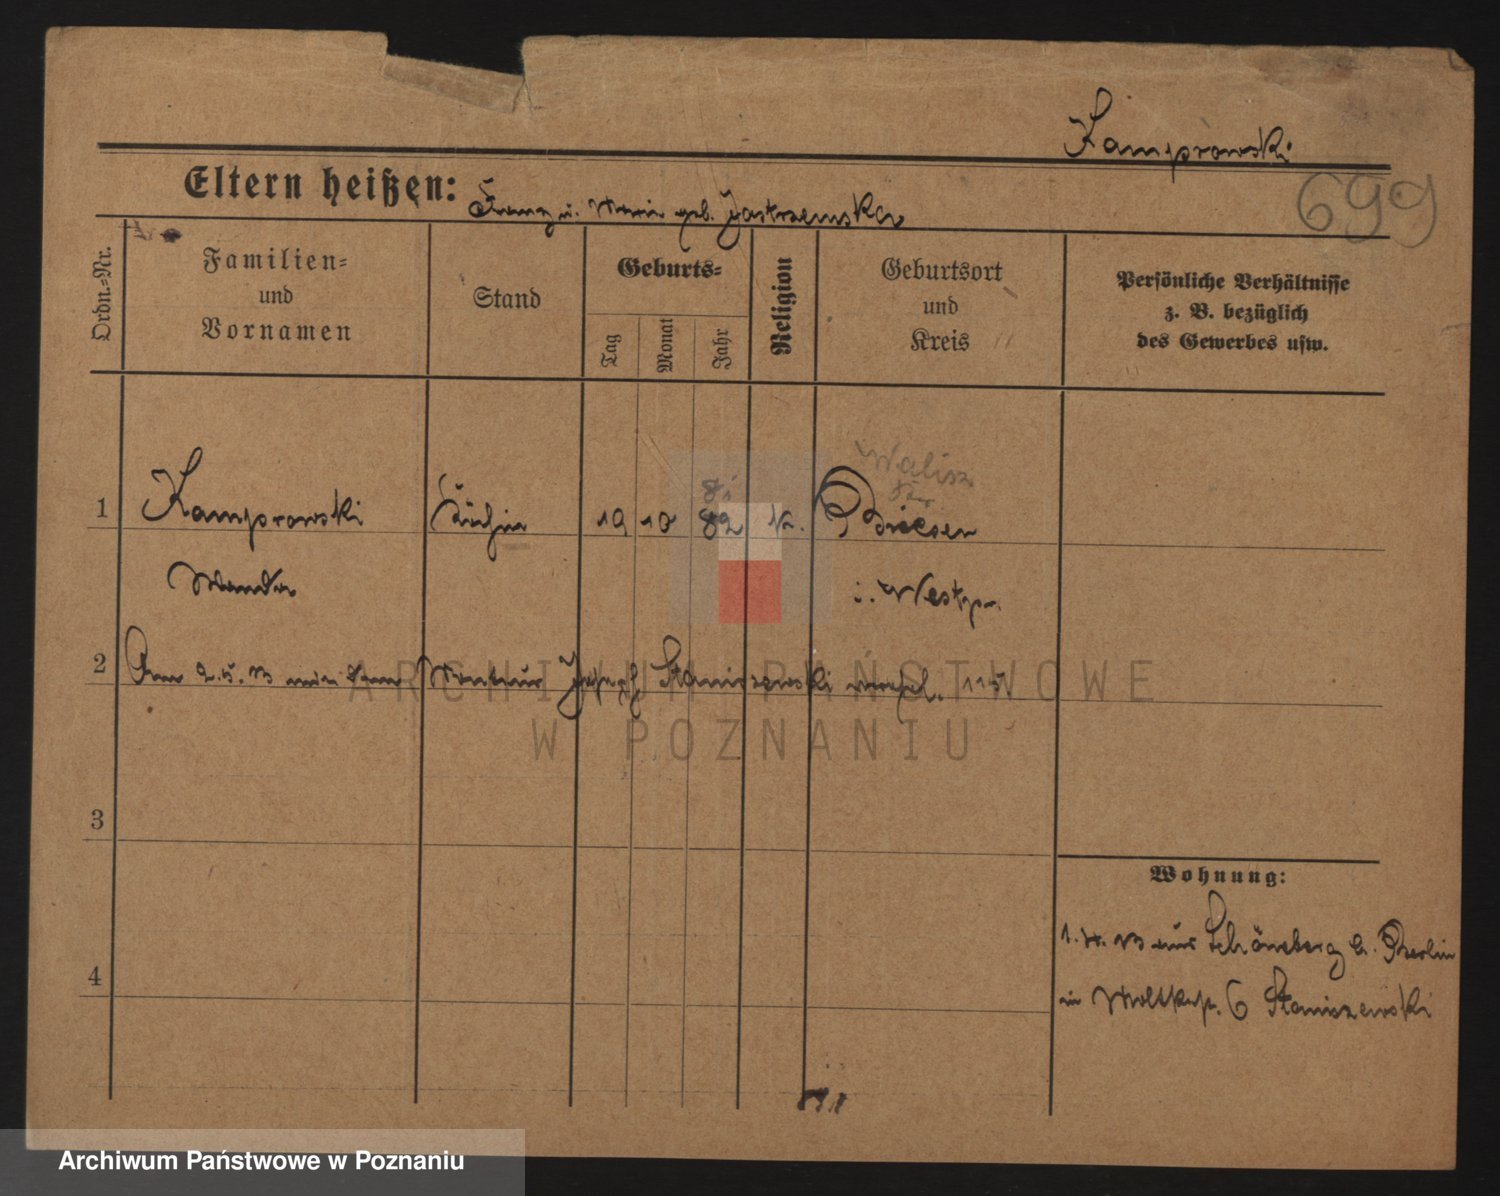 Kamprowski
699
Eltern heißen: Franz u. Maria geb. Jastrzemska
Ordn.-Nr.
Familien- und Vornamen
Stand
Geburts-
Tag
Monat
Jahr
Religion
Geburtsort und Kreis
Persönliche Verhältnisse z. B. bezüglich des Gewerbes usw.
Walisz
81
1 Kamprowski Köchin 19 10 82 k. Briesen
Wanda i. Westpr.
2 Am 2.5. 13 mit dem Monteur Joseph Staniszewski verehel. 115
3
4
Wohnung:
1.4.13 aus Schöneberg b. Berlin
in Moltkestr. 6 Staniszewski
ARCHIWUM PAŃSTWOWE
W POZNANIU
Archiwum Państwowe w Poznaniu